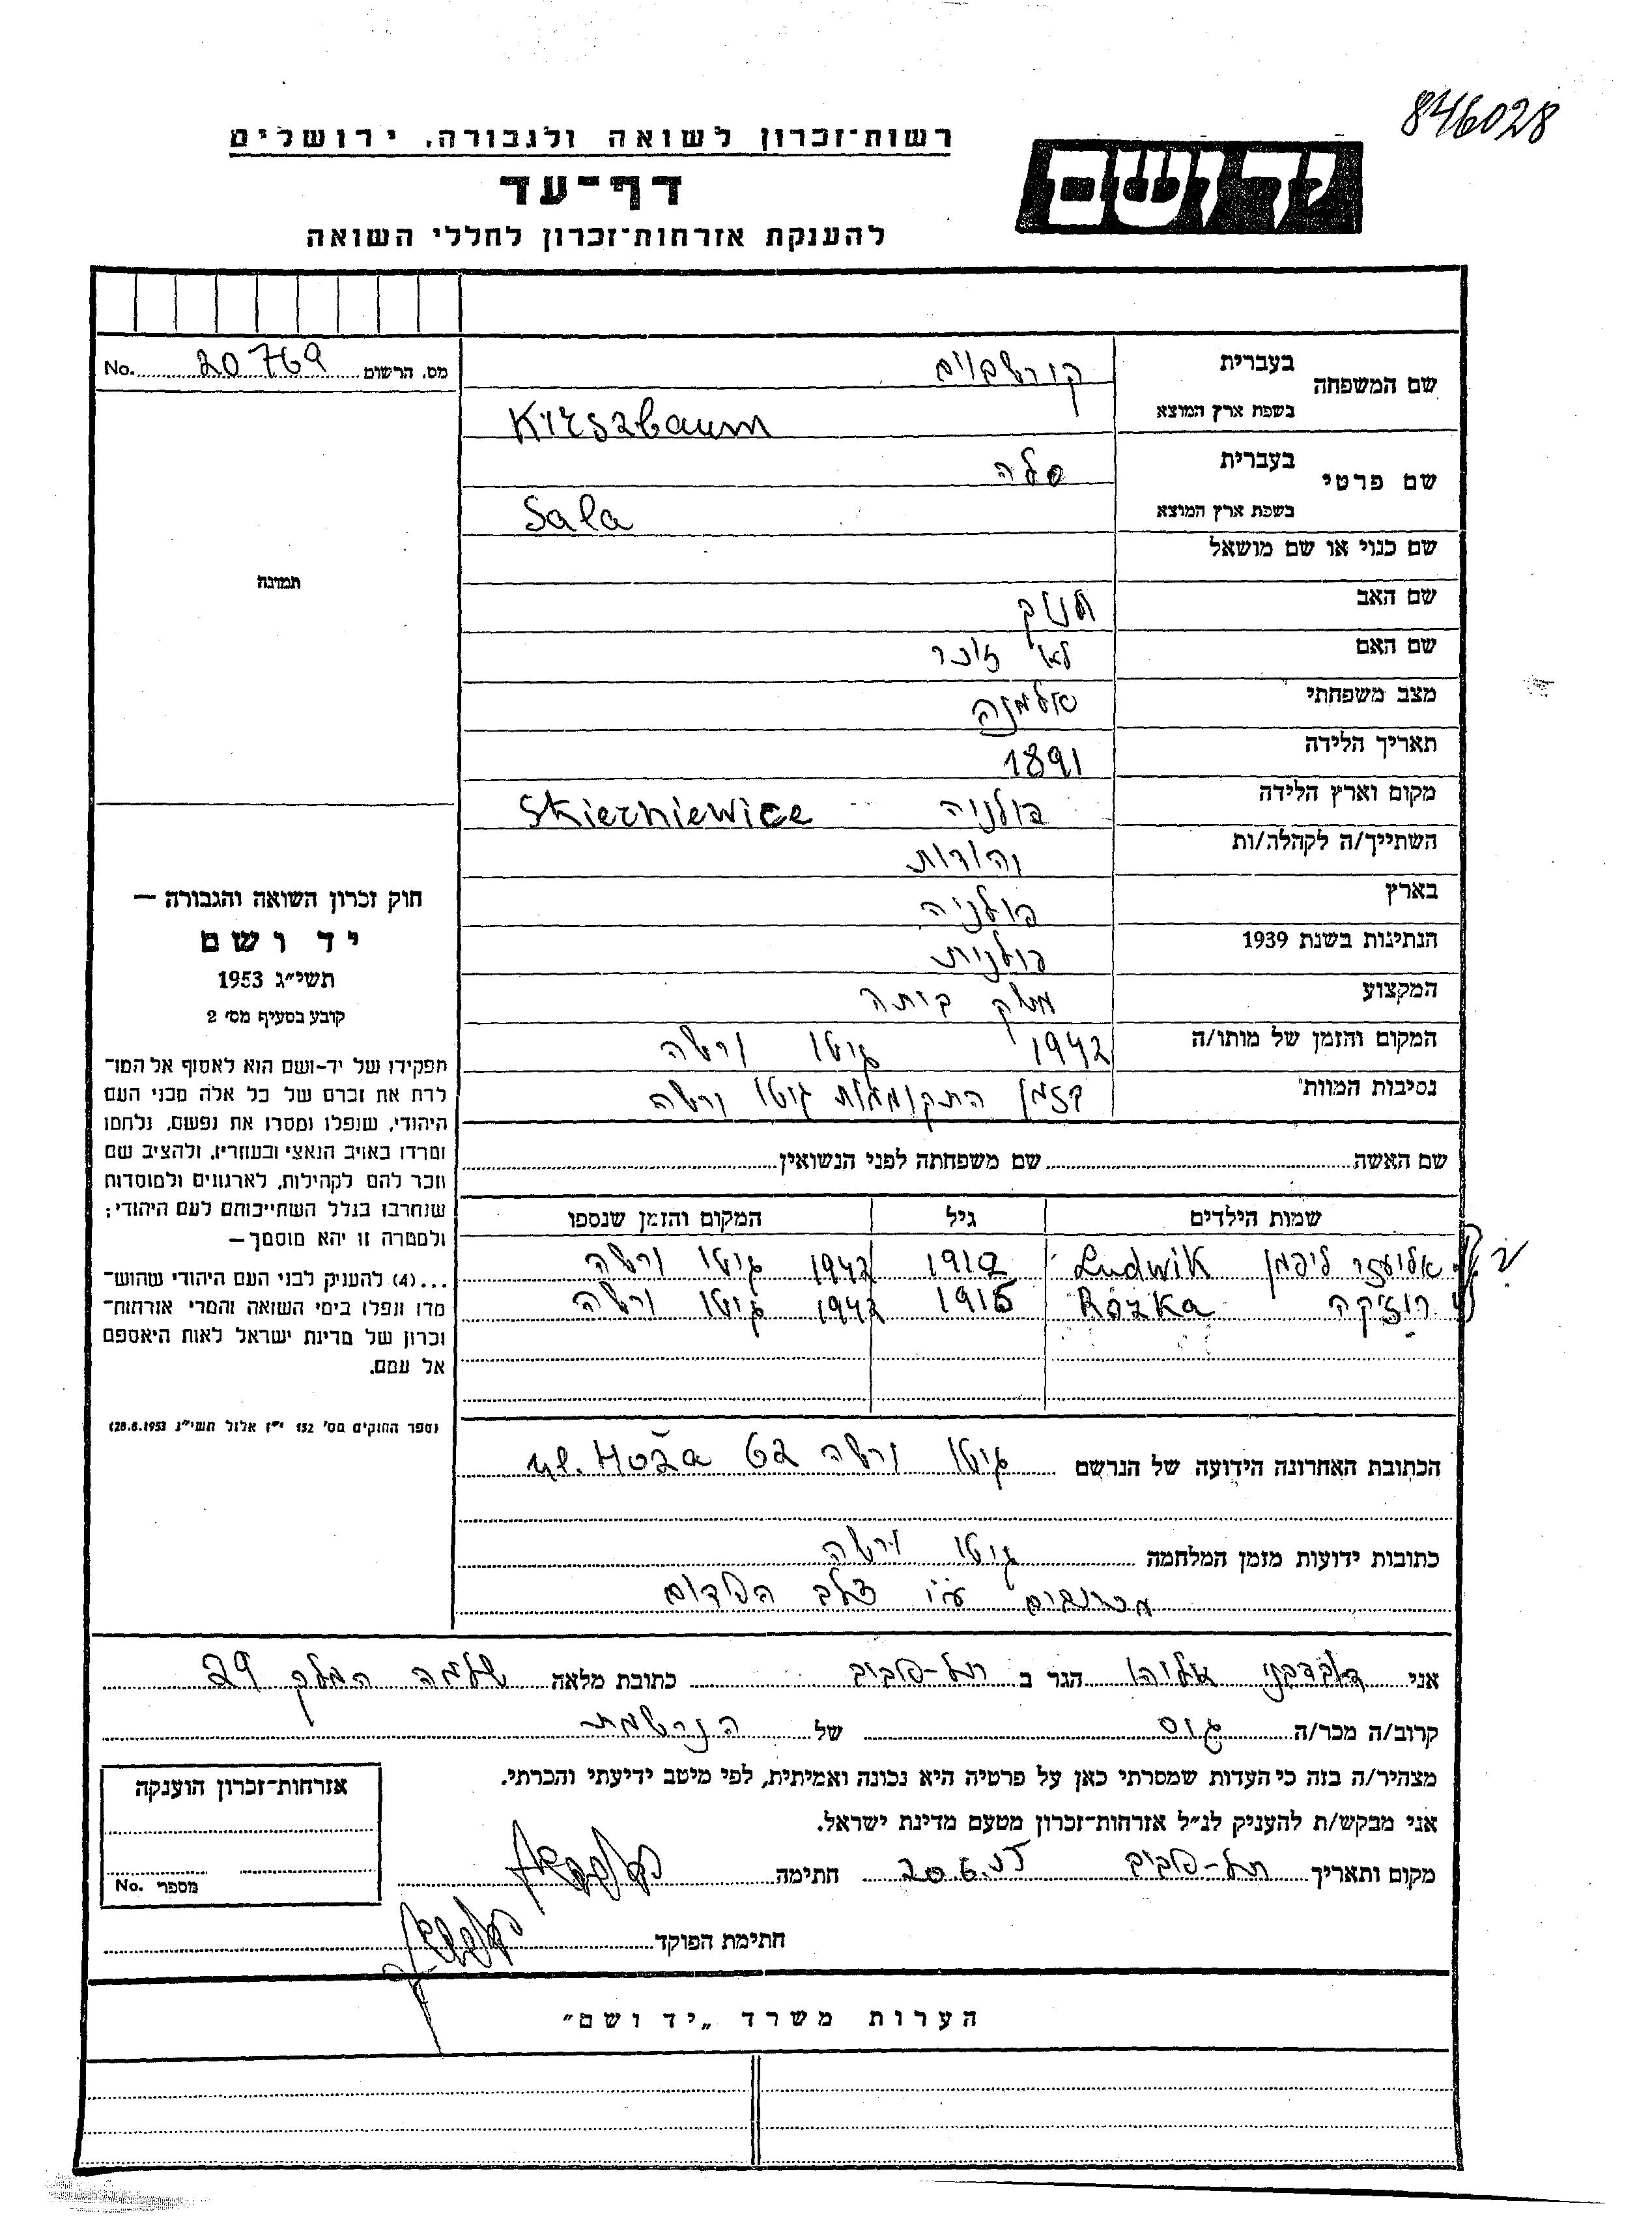 846028
רשות־זכרון לשואה ולגבורה, ירושלים
יד ושם
דף־עד
להענקת אזרחות־זכרון לחללי השואה
מס. הרשום No. 20769
שם המשפחה בעברית קורשבוים
בשפת ארץ המוצא Kirszbaum
שם פרטי בעברית סלה
בשפת ארץ המוצא Sala
שם כנוי או שם מושאל
תמונה
שם האב
שם האם
מצב משפחתי אלמנה
תאריך הלידה 1891
מקום וארץ הלידה פולניה Skierniewice
השתייך/ה לקהלה/ות יהודית
בארץ פולניה
הנתינות בשנת 1939 פולנית
המקצוע משק ביתה
המקום והזמן של מותו/ה 1942 גיטו ורשה
נסיבות המוות בזמן התקוממות גיטו ורשה
חוק זכרון השואה והגבורה —
יד ושם
תשי״ג 1953
קובע בסעיף מס׳ 2
תפקידו של יד-ושם הוא לאסוף אל המו־
לדת את זכרם של כל אלה מבני העם
היהודי, שנפלו ומסרו את נפשם, נלחמו
ומרדו באויב הנאצי ובעוזריו, ולהציב שם
וזכר להם לקהילות, לארגונים ולמוסדות
שנחרבו בגלל השתייכותם לעם היהודי;
ולמטרה זו יהא מוסמך—
...(4) להעניק לבני העם היהודי שהוש־
מדו ונפלו בימי השואה והמרי אזרחות־
זכרון של מדינת ישראל לאות היאספם
אל עמם.
(ספר החוקים מס׳ 132 י״ז אלול תשי״ג 28.8.1953)
שם האשה שם משפחתה לפני הנשואין
שמות הילדים גיל המקום והזמן שנספו
אליעזר ליפמן Ludwik 1912 1942 גיטו ורשה
רוזיקה Rózka 1915 1942 גיטו ורשה
הכתובת האחרונה הידועה של הנרשם גיטו ורשה ul. Hoża 62
כתובות ידועות מזמן המלחמה גיטו ורשה
ע״י צלב האדום
אני אליהו הגר ב תל-אביב כתובת מלאה שלמה המלך 29
קרוב/ה מכר/ה גיס של הנרשמת
מצהיר/ה בזה כי העדות שמסרתי כאן על פרטיה היא נכונה ואמיתית, לפי מיטב ידיעתי והכרתי.
אני מבקש/ת להעניק לנ״ל אזרחות־זכרון מטעם מדינת ישראל.
מקום ותאריך תל-אביב 20.6.55 חתימה
חתימת הפוקד
אזרחות־זכרון הוענקה
מספר No.
הערות משרד „יד ושם״